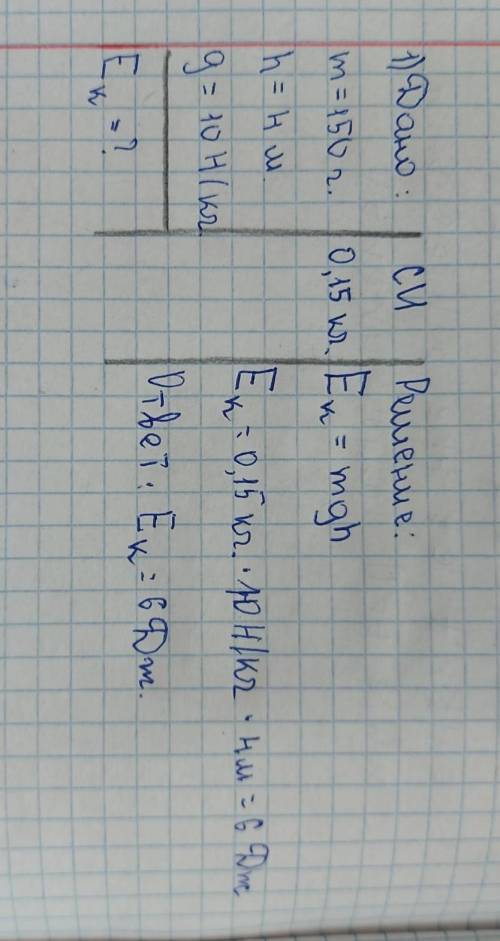 1) Дано:
m = 150 г.
h = 4 м.
g = 10 Н/кг.
Eк = ?
СИ
0,15 кг.
Решение:
Eк = mgh
Eк = 0,15 кг. · 10 Н/кг · 4м = 6 Дж
Ответ: Eк = 6 Дж.